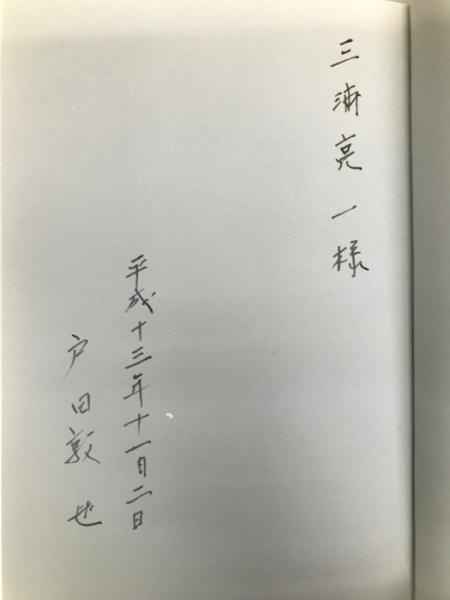 三浦亮一様
平成十三年十一月二日
戸田敦也